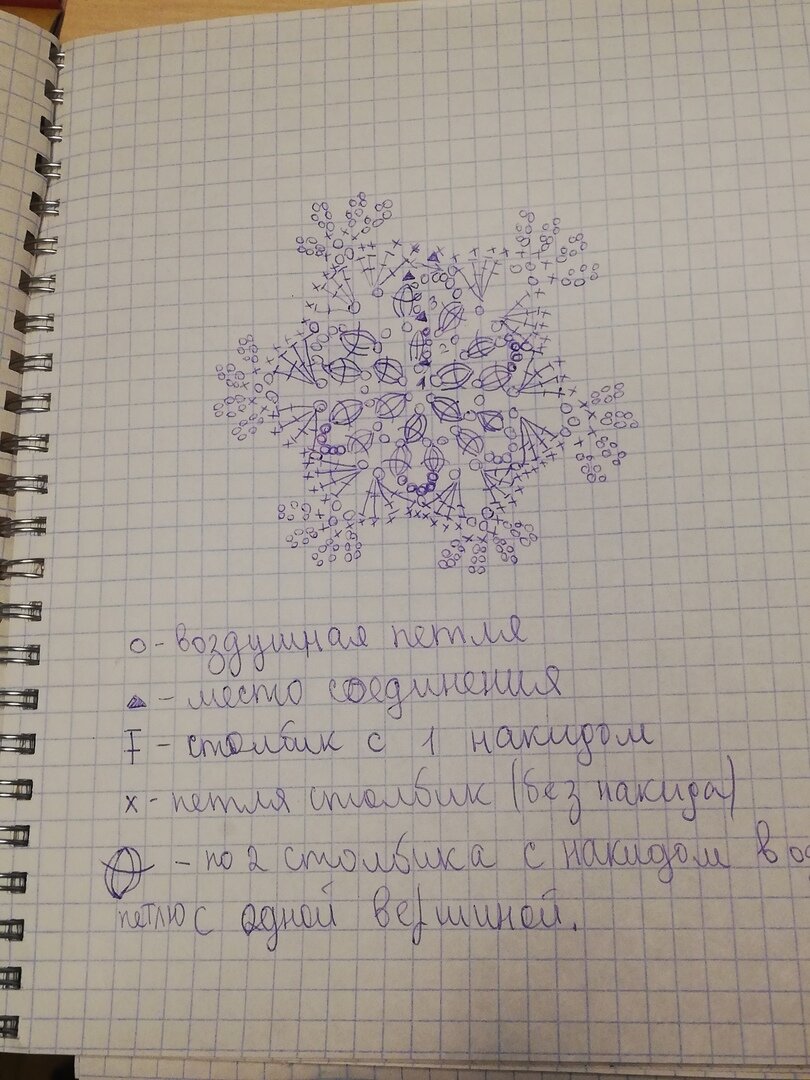 о - воздушная петля
▲ - место соединения
Ŧ - столбик с 1 накидом
х - петля столбик (без накида)
- по 2 столбика с накидом в
петлю с одной вершиной.